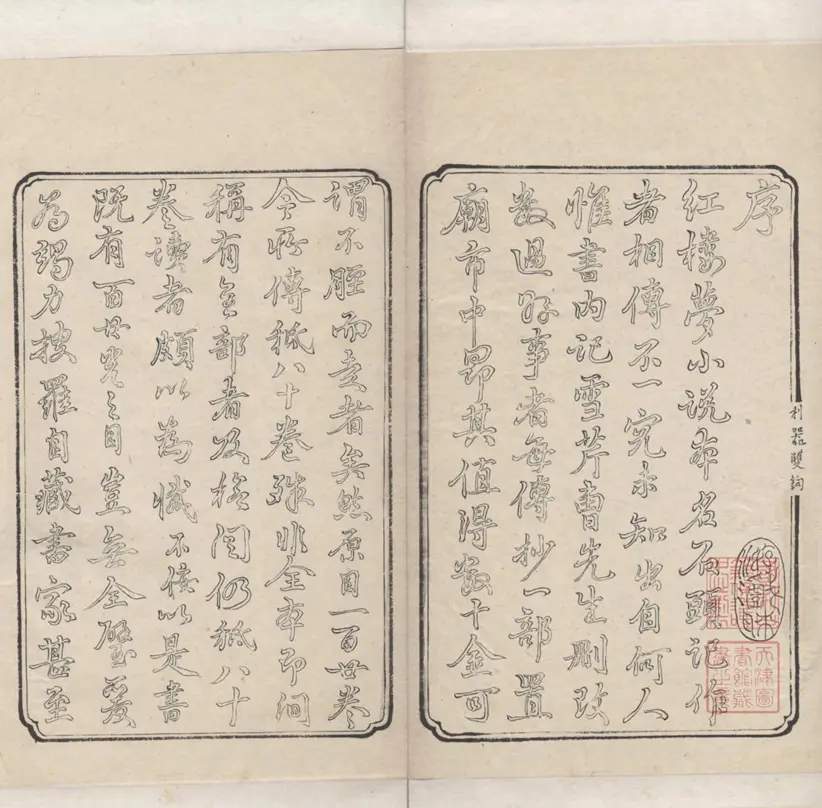 序
红楼夢小说本名石頭記作
者相傳不一究未知出自何人
惟書内記雪芹曹先生刪改
数過好事者每傳抄一部置
廟市中昂其值得数十金可
謂不脛而走者矣然原目一百廿卷
今所傳祗八十卷殊非全本即间
稱有全部者及檢閱仍祗八十
卷讀者頗以為憾不佞以是書
既有百廿卷之目豈無全璧爰
為竭力搜羅自藏書家甚至
利器雙鈎
游戲三昧
天津圖
書館藏
書之印